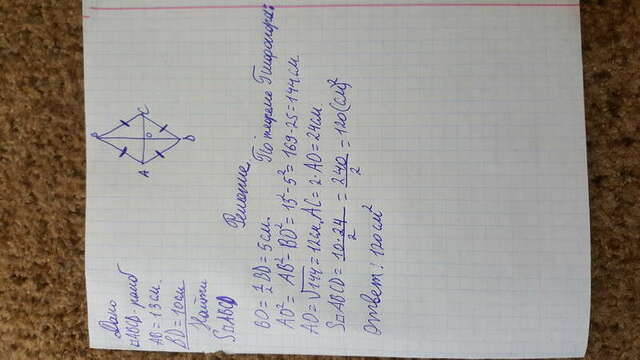 Дано
▱ABCD-ромб
AB = 13см.
BD = 10см
Найти
S▱ABCD
B
C
O
D
A
Решение.
BO = 1/2 BD = 5см. По теореме Пифагора:
AO² = AB² - BO² = 13² - 5² = 169-25 = 144см.
AO = √144 = 12см, AC = 2·AO = 24см
S▱ABCD = 10·24/2 = 240/2 = 120(см)²
Ответ: 120см²